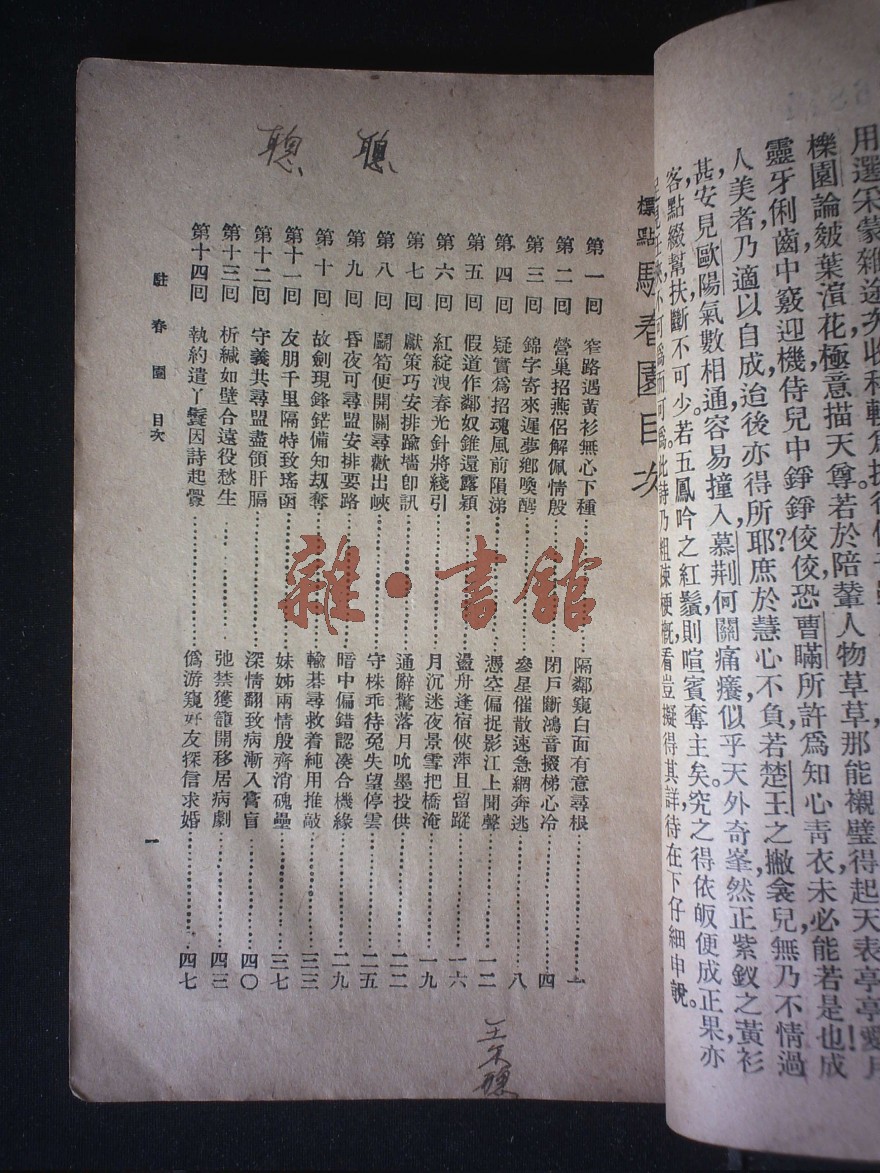 用選采蒙雜途
櫟園論皴葉渲花極意描天尊若於陪輦人物草草那能襯璧得起天表亭亭愛月
靈牙俐齒中竅迎機侍兒中錚錚佼佼恐曹瞞所許爲知心靑衣未必能若是也成
人美者乃適以自成迨後亦得所耶庶於慧心不負若楚王之撇衾兒無乃不情過
甚安見歐陽氣數相通容易撞入慕荆何關痛癢似乎天外奇峯然正紫釵之黃衫
客點綴幫扶斷不可少若五鳳吟之紅鬚則喧賓奪主矣究之得依皈便成正果亦
不可爲而可爲此詩乃粗陳梗槪看豈擬得其詳待在下仔細申說。
標點駐春園目次
第一回 窄路遇黃衫無心下種 隔鄰窺白面有意尋根 一
第二回 營巢招燕侶解佩情殷 閉戶斷鴻音掇梯心冷 四
第三回 錦字寄來遲夢鄕喚醒 參星催散速急網奔逃 八
第四回 疑實爲招魂風前隕涕 憑空偏捉影江上聞聲 一二
第五回 假道作鄰奴錐還露穎 盪舟逢宿俠萍且留蹤 一六
第六回 紅綻洩春光針將綫引 月沉迷夜景雪把橋淹 一九
第七回 獻策巧安排踰墻卽訊 通辭驚落月吮墨投供 二二
第八回 鬭筍便開關尋歡出峽 守株乖待兔失望停雲 二五
第九回 昏夜可尋盟安排要路 暗中偏錯認湊合機緣 二九
第十回 故劍現鋒鋩備知刼奪 輸碁尋救着純用推敲 三三
第十一回 友朋千里隔特致瑤函 妹姊兩情殷齊消磈壘 三七
第十二回 守義共尋盟盡領肝膈 深情翻致病漸入膏盲 四〇
第十三回 析緘如壁合遠役愁生 弛禁獲籠開移居病劇 四三
第十四回 執約遣丫鬟因詩起釁 僞游窺奸友探信求婚 四七
駐春園 目次
一
聰 聰
雜·書館